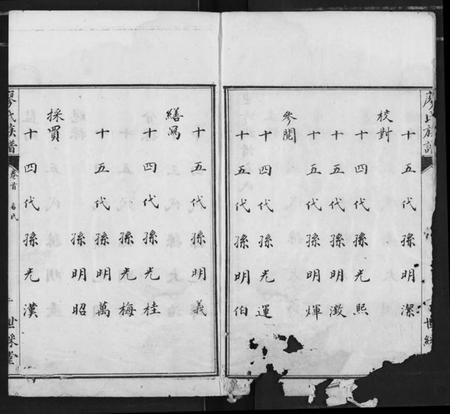 廖氏族譜
十五代孫明潔
校對
十四代孫光熙
十五代孫明激
十五代孫明煇
參閱
十四代孫光運
十五代孫明伯
十五代孫明義
繕寫
十四代孫光桂
孫光梅
十五代孫明萬
孫明昭
採買
十四代孫光漢
廖氏族譜
卷首
世綵堂